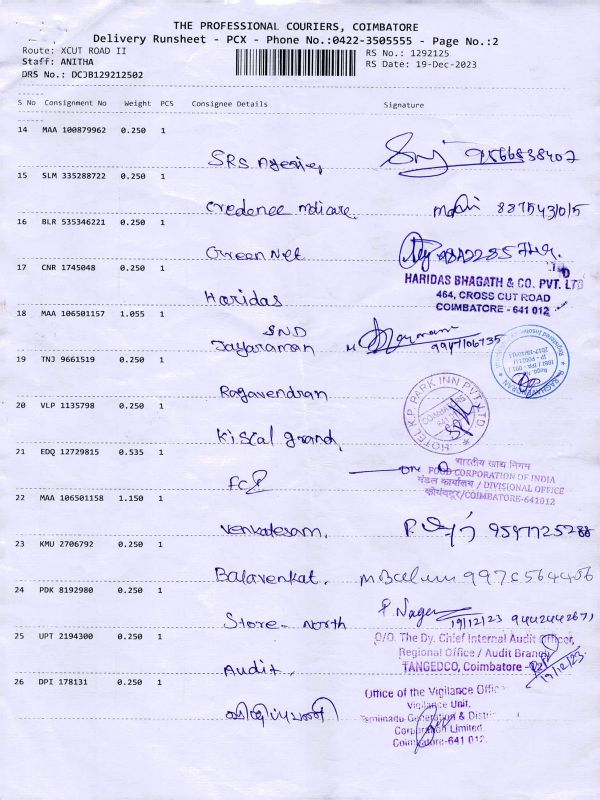 THE PROFESSIONAL COURIERS, COIMBATORE
Delivery Runsheet - PCX - Phone No.:0422-3505555 - Page No.:2
Route: XCUT ROAD II
RS No.: 1292125
Staff: ANITHA
RS Date: 19-Dec-2023
DRS No.: DCJB129212502
S No Consignment No Weight PCS Consignee Details Signature
14 MAA 100879962 0.250 1
SRS Agencies
15 SLM 335288722 0.250 1
Credence medicare. 887543/0/5
16 BLR 535346221 0.250 1
Green Net
17 CNR 1745048 0.250 1
HARIDAS BHAGATH & CO. PVT. LTD
464, CROSS CUT ROAD
COIMBATORE - 641 012
Haridas
18 MAA 106501157 1.055 1
SND
Jayaraman 9947106735
19 TNJ 9661519 0.250 1
Ragavendran
20 VLP 1135798 0.250 1
HOTEL K.P. PARK INN PVT LTD
Kiscal grand.
21 EDQ 12729815 0.535 1
भारतीय खाद्य निगम
FOOD CORPORATION OF INDIA
मंडल कार्यालय / DIVISIONAL OFFICE
कोयंबटूर/COIMBATORE-641012
FCI
22 MAA 106501158 1.150 1
Venkadesam. 9597725288
23 KMU 2706792 0.250 1
Balavenkat. 9976564406
24 PDK 8192980 0.250 1
Store - North P. Nagen 19/12/23 9442442671
25 UPT 2194300 0.250 1
O/O. The Dy. Chief Internal Audit Officer,
Regional Office / Audit Branch
TANGEDCO, Coimbatore - 12
19/12/23
Audit.
26 DPI 178131 0.250 1
Office of the Vigilance Office
Vigilance Unit,
Tamilnadu Generation & Distri
Corporation Limited.
Coimbatore-641 012.
விழிப்புபணி